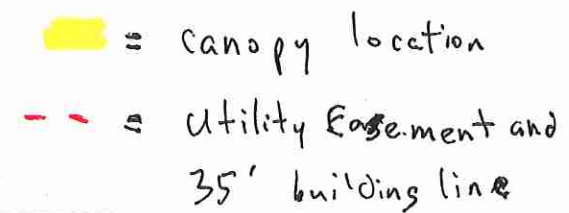 = canopy location
= Utility Easement and
35' building line